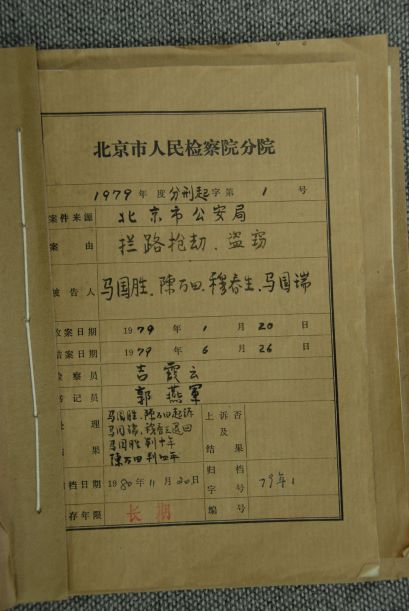 北京市人民检察院分院
1979年度分刑起字第1号
案件来源 北京市公安局
案由 拦路抢劫、盗窃
被告人 马国胜、陳万田、穆春生、马国瑞
收案日期 1979年1月20日
结案日期 1979年6月26日
察员 吉霞云
记员 郭燕軍
处理 马国胜、陳万田起诉
马国瑞、穆春生退回
马国胜判十年
果 陳万田判四年
上诉否及结果
归档日期 1980年11月20日
归档字号 79年1
存年限 长期
编号